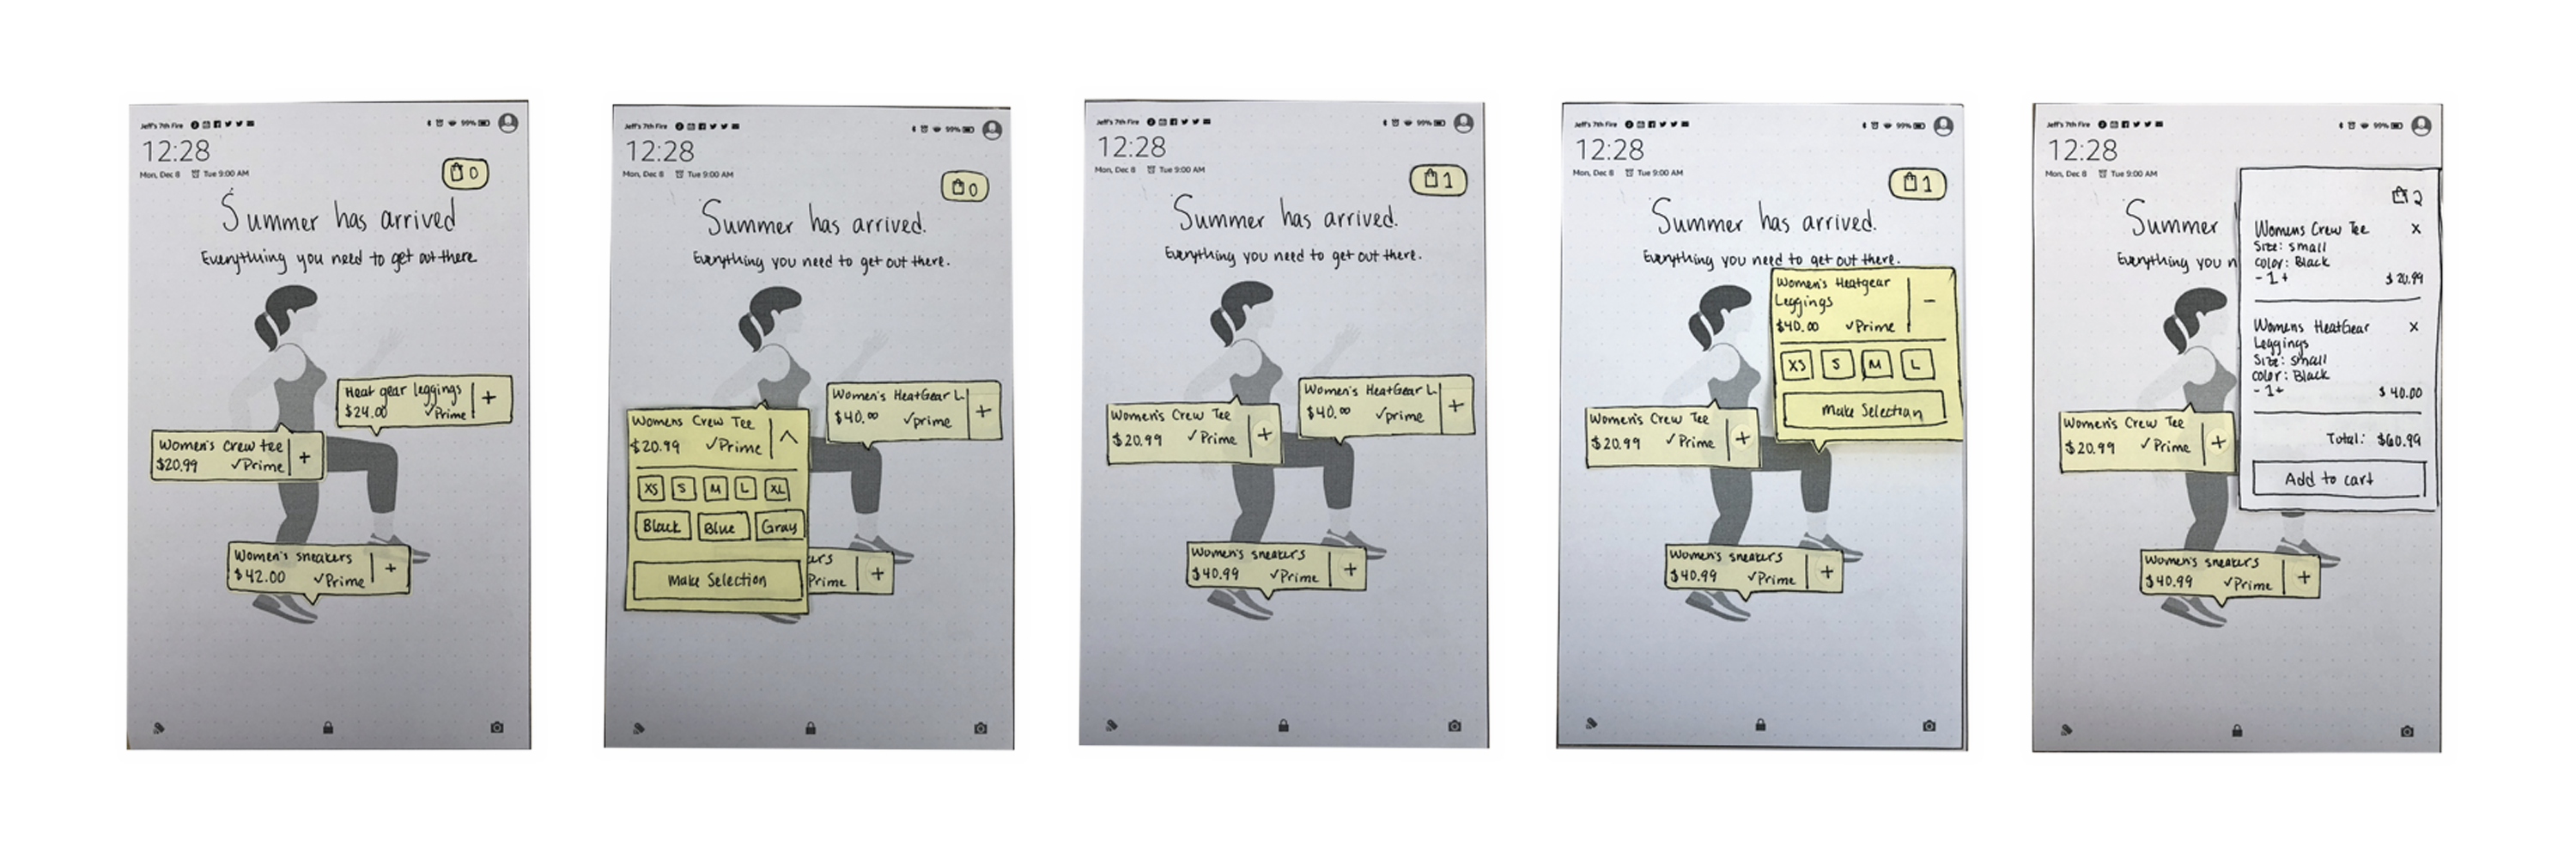 Jeff's 7th Fire
99%
12:28
Mon, Dec 8 Tue 9:00 AM
0
Summer has arrived
Everything you need to get out there
Heat gear leggings +
$24.00 ✓Prime
Women's Crew tee +
$20.99 ✓Prime
Women's sneakers +
$42.00 ✓Prime
Jeff's 7th Fire
99%
12:28
Mon, Dec 8 Tue 9:00 AM
0
Summer has arrived.
Everything you need to get out there.
Women's HeatGear L +
$40.00 ✓prime
Womens Crew Tee
$20.99 ✓Prime
XS S M L XL
Black Blue Gray
Make Selection
ers +
Prime
Jeff's 7th Fire
99%
12:28
Mon, Dec 8 Tue 9:00 AM
1
Summer has arrived.
Everything you need to get out there.
Women's HeatGear L +
$40.00 ✓prime
Women's Crew Tee +
$20.99 ✓Prime
Women's sneakers +
$40.99 ✓Prime
Jeff's 7th Fire
99%
12:28
Mon, Dec 8 Tue 9:00 AM
1
Summer has arrived.
Everything you need to get out there.
Women's Heatgear
Leggings -
$40.00 ✓Prime
XS S M L
Make Selection
Women's Crew Tee +
$20.99 ✓Prime
Women's sneakers +
$40.99 ✓Prime
Jeff's 7th Fire
99%
12:28
Mon, Dec 8 Tue 9:00 AM
Summer
Everything you n
2
Womens Crew Tee X
Size: small
color: Black
- 1 + $20.99
Womens HeatGear X
Leggings
Size: small
color: Black
- 1 + $40.00
Total: $60.99
Add to cart
Women's Crew Tee +
$20.99 ✓Prime
Women's sneakers +
$40.99 ✓Prime